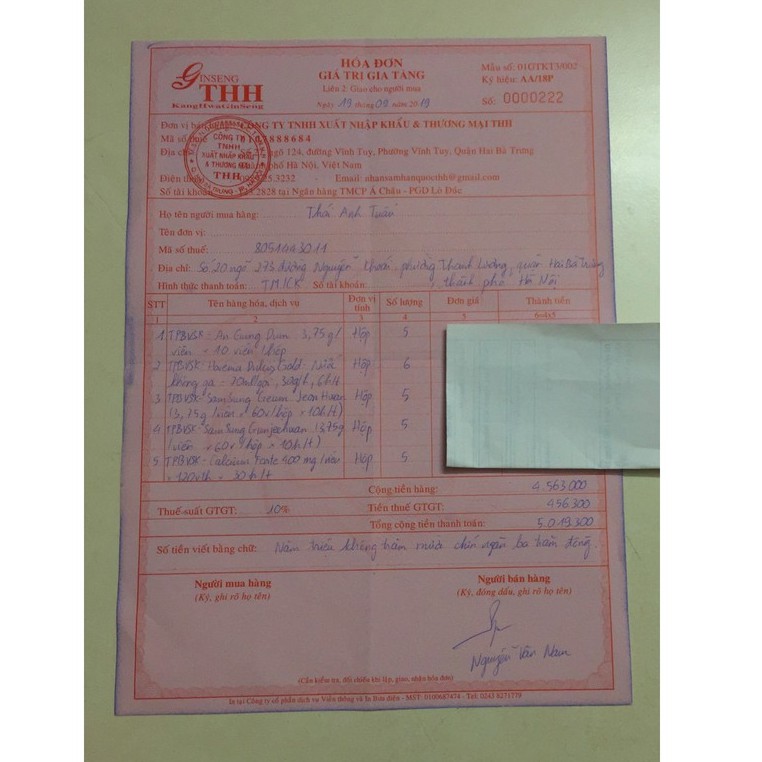 GINSENG
THH
KangHwaGinSeng
HÓA ĐƠN
GIÁ TRỊ GIA TĂNG
Liên 2: Giao cho người mua
Ngày 19 tháng 09 năm 2019
Mẫu số: 01GTKT3/002
Ký hiệu: AA/18P
Số: 0000222
Đơn vị bán CÔNG TY TNHH XUẤT NHẬP KHẨU & THƯƠNG MẠI THH
Mã số thuế 888684
Địa chỉ ngõ 124, đường Vĩnh Tuy, Phường Vĩnh Tuy, Quận Hai Bà Trưng
phố Hà Nội, Việt Nam
Điện thoại 3232 - Email: nhansamhanquocthh@gmail.com
Số tài khoản 2828 tại Ngân hàng TMCP Á Châu - PGD Lò Đúc
CÔNG TY
TNHH
XUẤT NHẬP KHẨU
& THƯƠNG MẠI
THH
Họ tên người mua hàng: Thái Anh Tuấn
Tên đơn vị:
Mã số thuế: 8051443011
Địa chỉ: Số 20 ngõ 273 đường Nguyễn Khoái, phường Thanh Lương, quận Hai Bà Trưng
Hình thức thanh toán: TM/CK Số tài khoản: thành phố Hà Nội
STT Tên hàng hóa, dịch vụ Đơn vị tính Số lượng Đơn giá Thành tiền
1 2 3 4 5 6=4x5
1 TPBVSK - An Gung Dum 3,75g/ Hộp 5
viên × 10 viên/hộp
2 TPBVSK - Gold - Hộp 6
không ga - 70ml/gói, 30g/h, 6h/t
3 TPBVSK - SamSung Jeon Hộp 5
(3,75g/viên × 60v/hộp × 10h/t)
4 TPBVSK - SamSung (3,75g Hộp 5
/viên × 60v/hộp × 10h/t)
5 TPBVSK - Calcium Forte 400 mg/viên Hộp 5
× 120v/h × 30h/t
Cộng tiền hàng: 4.563.000
Thuế suất GTGT: 10% Tiền thuế GTGT: 456.300
Tổng cộng tiền thanh toán: 5.019.300
Số tiền viết bằng chữ: Năm triệu không trăm mười chín ngàn ba trăm đồng.
Người mua hàng
(Ký, ghi rõ họ tên)
Người bán hàng
(Ký, đóng dấu, ghi rõ họ tên)
Nguyễn Văn Nam
(Cần kiểm tra, đối chiếu khi lập, giao, nhận hóa đơn)
In tại Công ty cổ phần dịch vụ Viễn thông và In Bưu điện - MST: 0100687474 - Tel: 0243 8271779